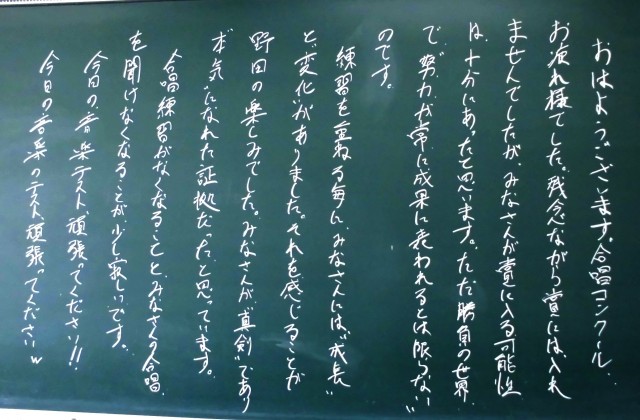 おはようございます。合唱コンクール
お疲れ様でした。残念ながら賞には入れ
ませんでしたが、みなさんが賞に入る可能性
は、十分にあったと思います。ただ勝負の世界
で、"努力が常に成果に表われるとは限らない"
のです。
練習を重ねる毎に、みなさんには、"成長"
と、"変化"がありました。それを感じることが
野田の楽しみでした。みなさんが"真剣"であり
"本気"になれた証拠だった、と思っています。
合唱練習がなくなることと、みなさんの合唱
を聞けなくなることが、少し寂しいです。
今日の、音楽テスト、頑張ってください!!
今日の音楽のテスト、頑張ってください。w